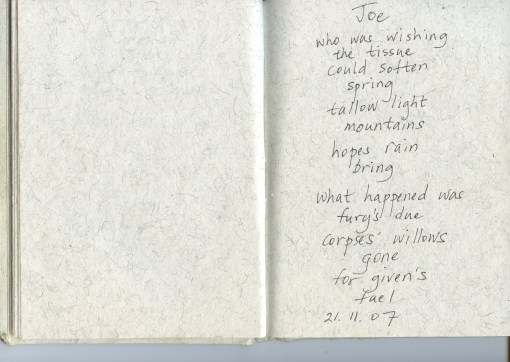 Joe
who was wishing
the tissue
could soften
spring
tallow light
mountains
hopes rain
bring
what happened was
fury's due
corpses' willows
gone
for given's
fuel
21.11.07